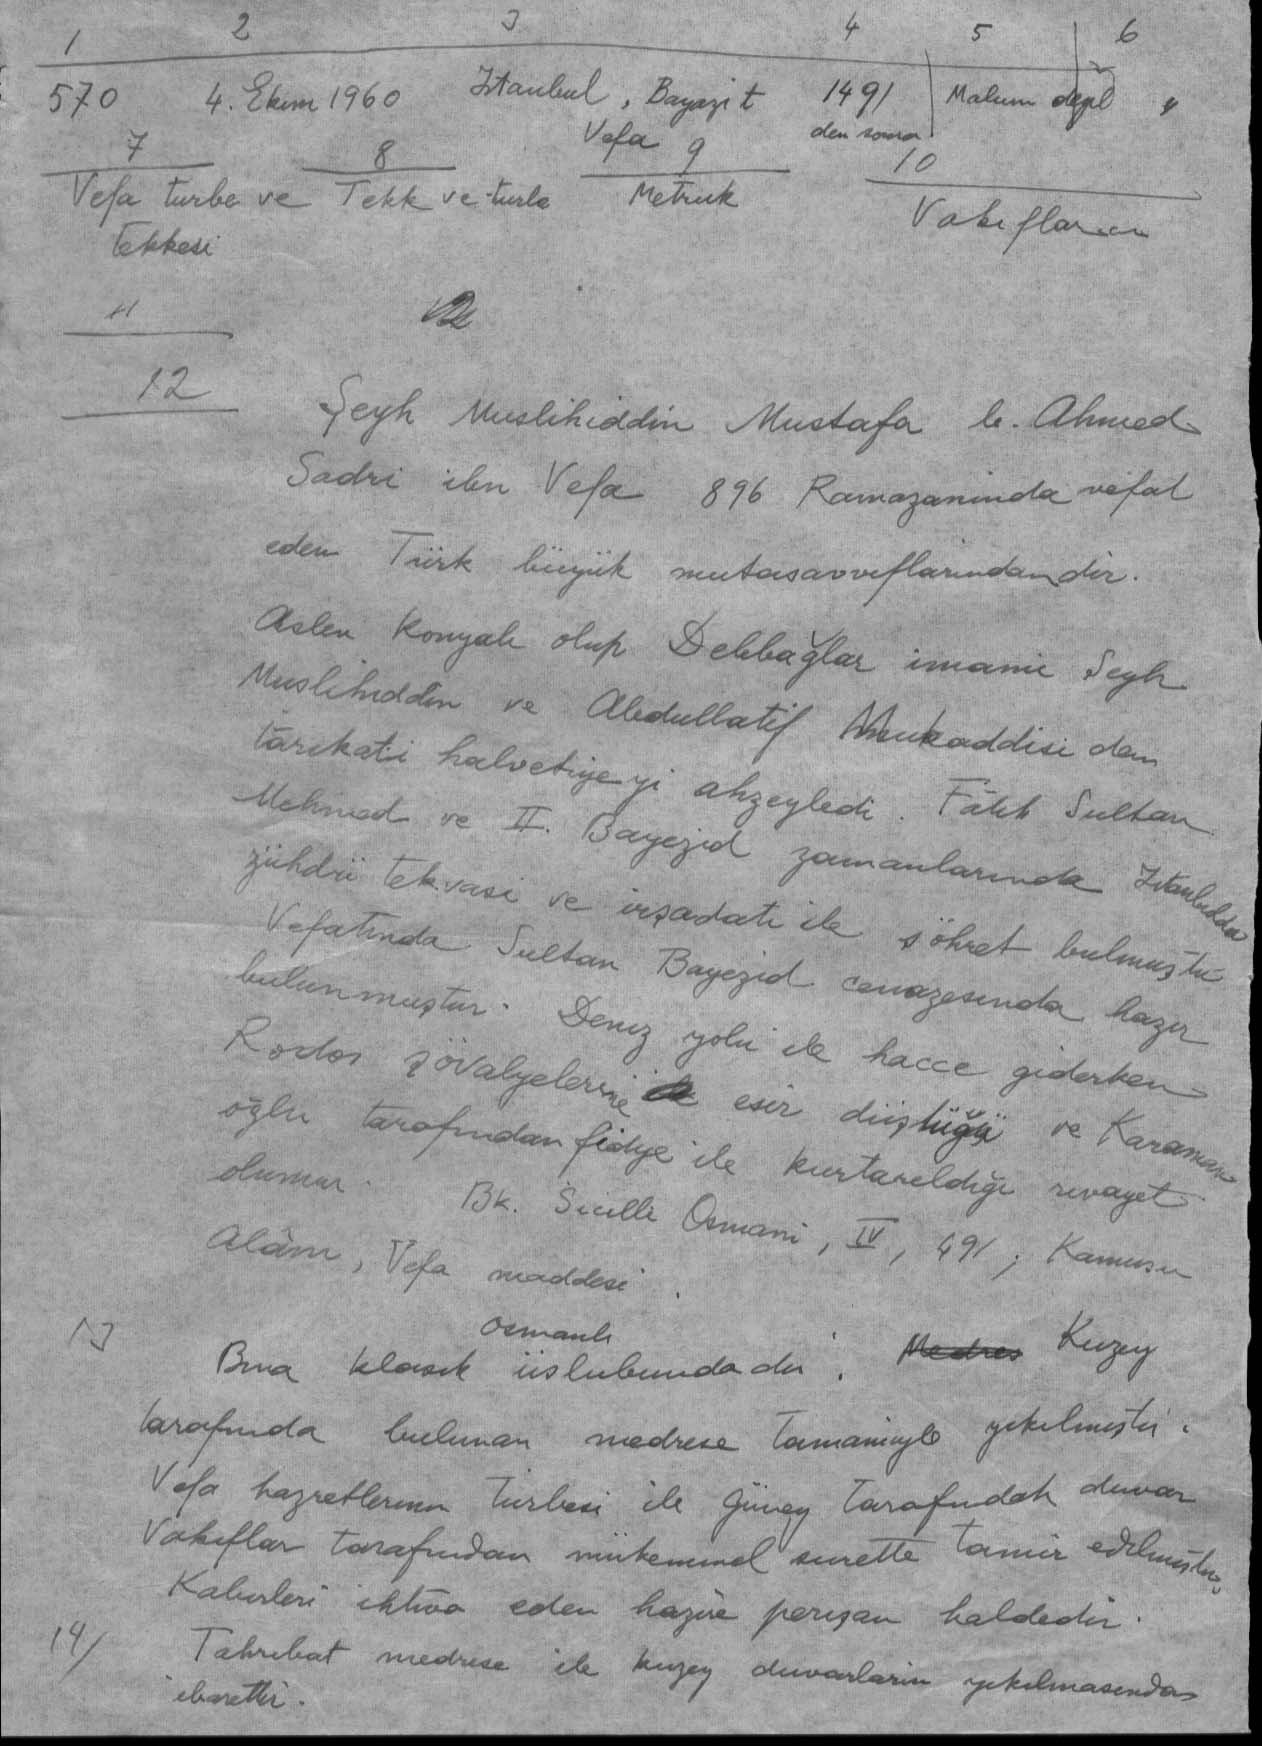 1 2 3 4 5 6
570 4. Ekim 1960 Istanbul, Bayazit 1491 Malum değil
Vefa den sonra
7 8 9 10
Vefa turbe ve Tekk ve turbe Metruk Vakıfların
tekkesi
11
12
Şeyh Muslihiddin Mustafa b. Ahmed
Sadri ibn Vefa 896 Ramazanında vefat
eden Türk büyük mutasavvıflarındandır.
Aslen Konyalı olup Debbağlar imamı Şeyh
Muslihiddin ve Abdullatif Mukaddisi den
tarikat-i halvetiyeyi ahzeyledi. Fâtih Sultan
Mehmed ve II. Bayezid zamanlarında Istanbulda
zühdü tekvası ve irşadatı ile şöhret bulmuştu
Vefatında Sultan Bayezid cenazesinda hazır
bulunmuştur. Deniz yolu ile hacce giderken
Rodos şövalyelerine esir düştüğü ve Karaman
oğlu tarafından fidye ile kurtarıldığı rivayet
olunur. Bk. Sicilli Osmani, IV, 491; Kamusu
Alâm, Vefa maddesi.
13 osmanlı
Bina klasik üslubundadır. Medres Kuzey
tarafında bulunan medrese tamamiyle yıkılmıştır.
Vefa hazretlerinin türbesi ile güney tarafındaki duvar
Vakıflar tarafından mükemmel surette tamir edilmiştir.
Kabirleri ihtiva eden hazire perişan haldedir.
14/ Tahribat medrese ile kuzey duvarların yıkılmasından
ibarettir.